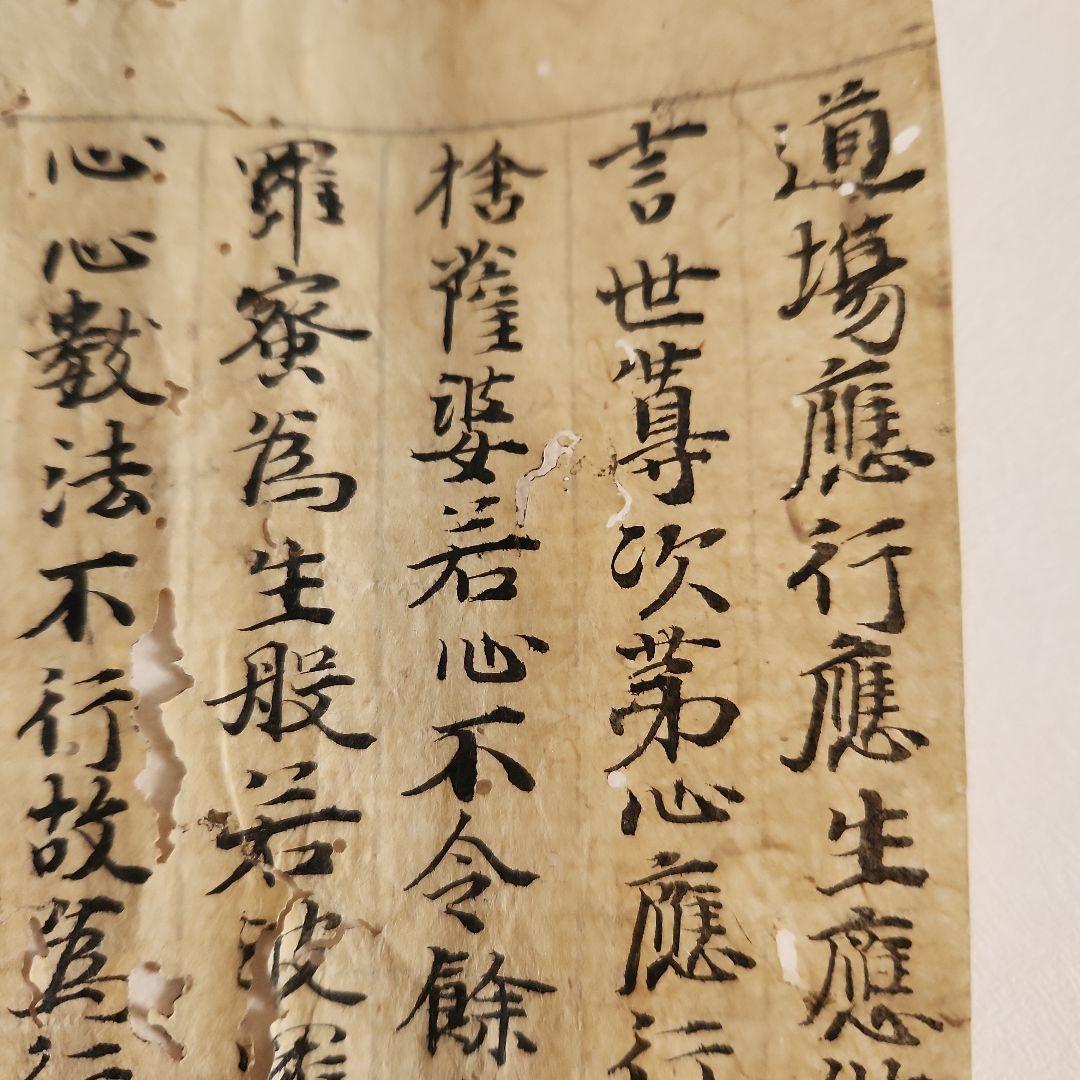 道場應行應生應
言世尊次第心應行
捨薩婆若心不令餘
羅蜜為生般若波羅
心心數法不行故為行